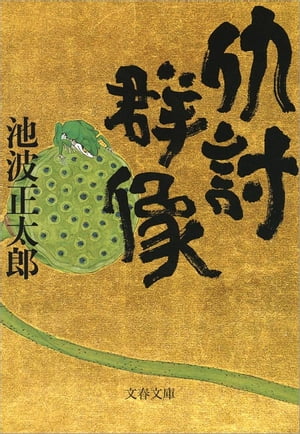 仇討
群像
池波正太郎
文春文庫